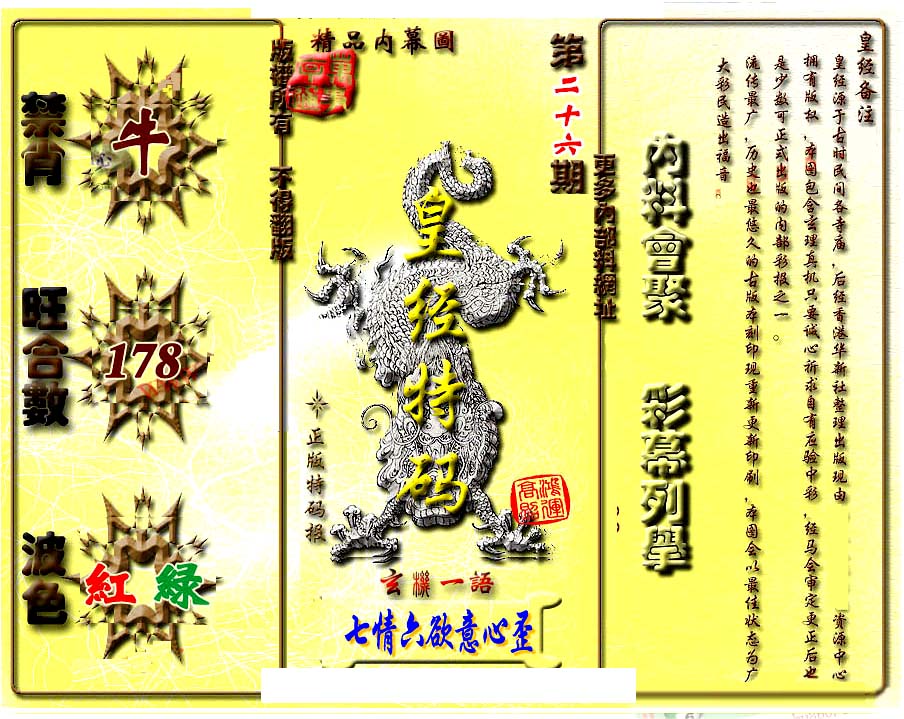 精品内幕圖
版權所有 不得翻版
第二十六期
更多內部料網址
禁肖
牛
旺合數
178
波色
紅 綠
皇经特码
正版特码报
鴻運高照
玄機一語
七情六欲意心歪
內料會聚
彩幕列舉
皇经备注
皇经源于古时民间各寺庙，后经香港华新社整理出版现由 资源中心
拥有版权，本图包含玄理真机只要诚心祈求自有应验中彩，经马会审定更正后也
是少数可正式出版的内部彩报之一。
流传最广，历史也最悠久的古版本刻印现重新更新印刷，本图会以最佳状态为广
大彩民造出福音